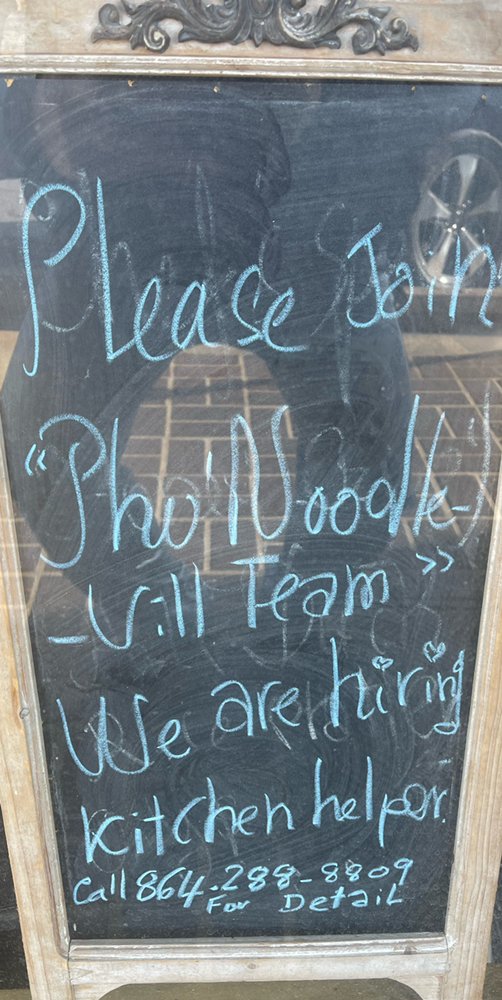 Please Join
"Pho Noodle-
-Vill Team"
We are hiring
kitchen helper.
Call 864.288-8809
For Detail